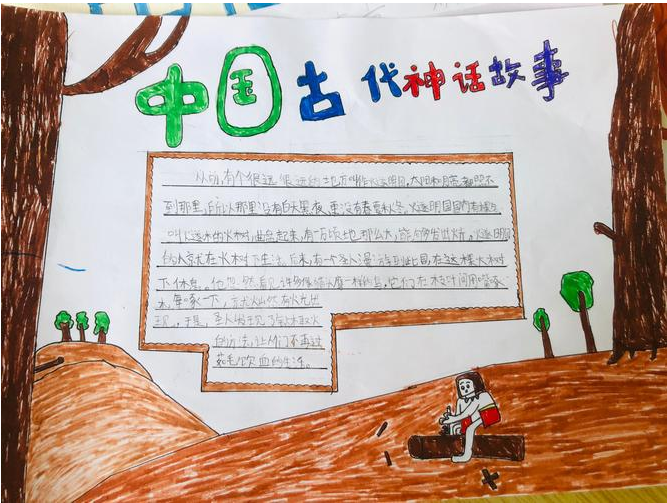 中国古代神话故事
从前,有个很远很远的地方叫作火遂明国,太阳和月亮都照不
到那里,所以那里没有白天黑夜,更没有春夏秋冬。火遂明国国内有棵
叫火遂木的火树,曲盘起来,有一万顷地那么大,能够发出火花。火遂明国
的人就在火树下生活。后来,有一个圣人漫游到此国,在这棵大树
下休息。他忽然看见许多像猫头鹰一样的鸟,它们在枝叶间用嘴啄
木,每啄一下,就灿然有火光出
现。于是,圣人发现了钻木取火
的方法,让人们不再过
茹毛饮血的生活。